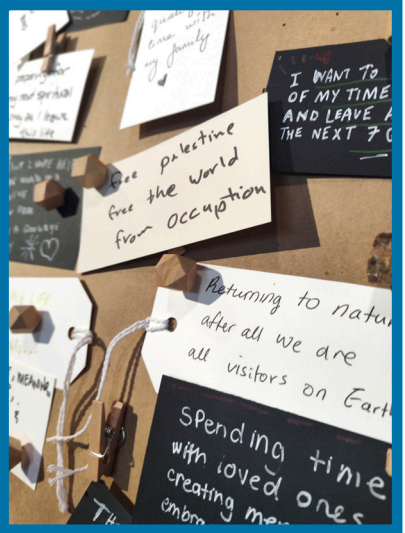 quality
time with
my family
my next spiritual
as I leave
this life
I WANT TO
OF MY TIME
AND LEAVE A
THE NEXT 7 G
free palestine
free the world
from occuption
Returning to natur
after all we are
all visitors on Earth
MEANING
Spending time
with loved ones
creating mem
embra
TH